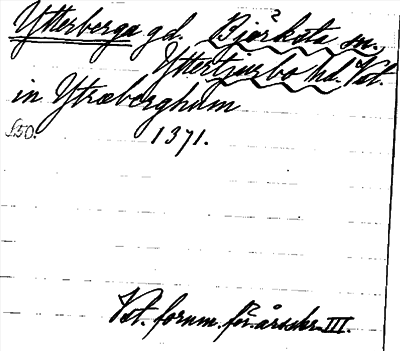 Ytterberga gd. Björksta sn.
Yttertjurbo hd. Vst.
in Ytræberghum
S. 50. 1371.
Vst. fornm. för. årsskr. III.